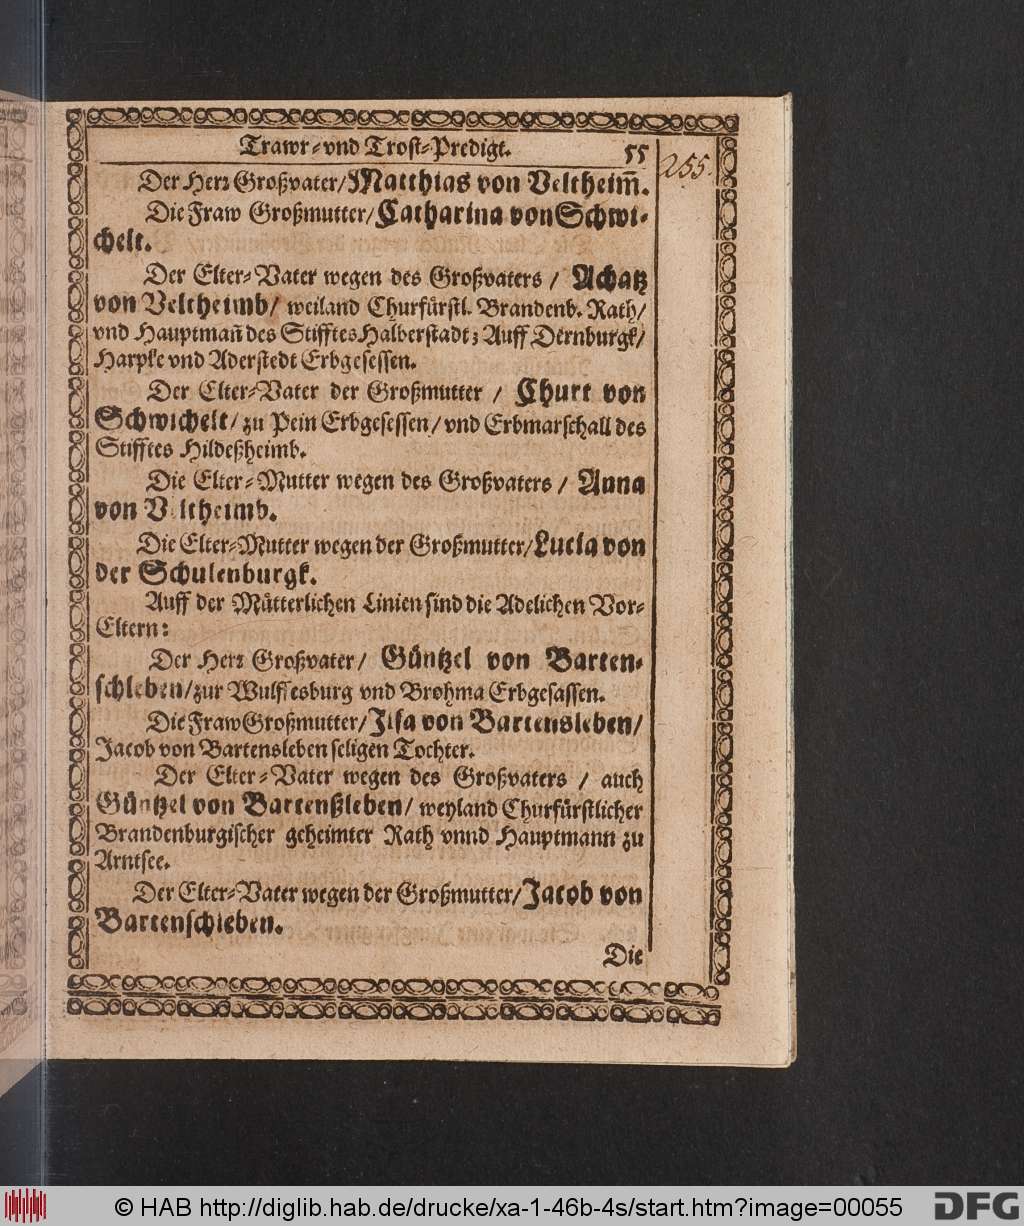 Trawr- vnd Trost-Predigt. 55
255.
Der Herr Großvater/ Matthias von Veltheim̃.
Die Fraw Großmutter/ Catharina von Schwi-
chelt.
Der Elter-Vater wegen des Großvaters / Achatz
von Veltheimb/ weiland Churfürstl. Brandenb. Rath/
vnd Hauptmañ des Stifftes Halberstadt; Auff Dernburgk/
Harpke vnd Aderstedt Erbgesessen.
Der Elter-Vater der Großmutter / Churt von
Schwichelt/ zu Pein Erbgesessen/ vnd Erbmarschall des
Stifftes Hildeßheimb.
Die Elter-Mutter wegen des Großvaters / Anna
von Veltheimb.
Die Elter-Mutter wegen der Großmutter/ Lucia von
der Schulenburgk.
Auff der Mütterlichen Linien sind die Adelichen Vor-
Eltern:
Der Herr Großvater/ Güntzel von Barten-
schleben/ zur Wulffesburg vnd Brohma Erbgesassen.
Die Fraw Großmutter/ Ilsa von Bartensleben/
Jacob von Bartensleben seligen Tochter.
Der Elter-Vater wegen des Großvaters / auch
Güntzel von Bartenßleben/ weyland Churfürstlicher
Brandenburgischer geheimter Rath vnnd Hauptmann zu
Arntsee.
Der Elter-Vater wegen der Großmutter/ Jacob von
Bartenschleben.
Die
© HAB http://diglib.hab.de/drucke/xa-1-46b-4s/start.htm?image=00055
DFG